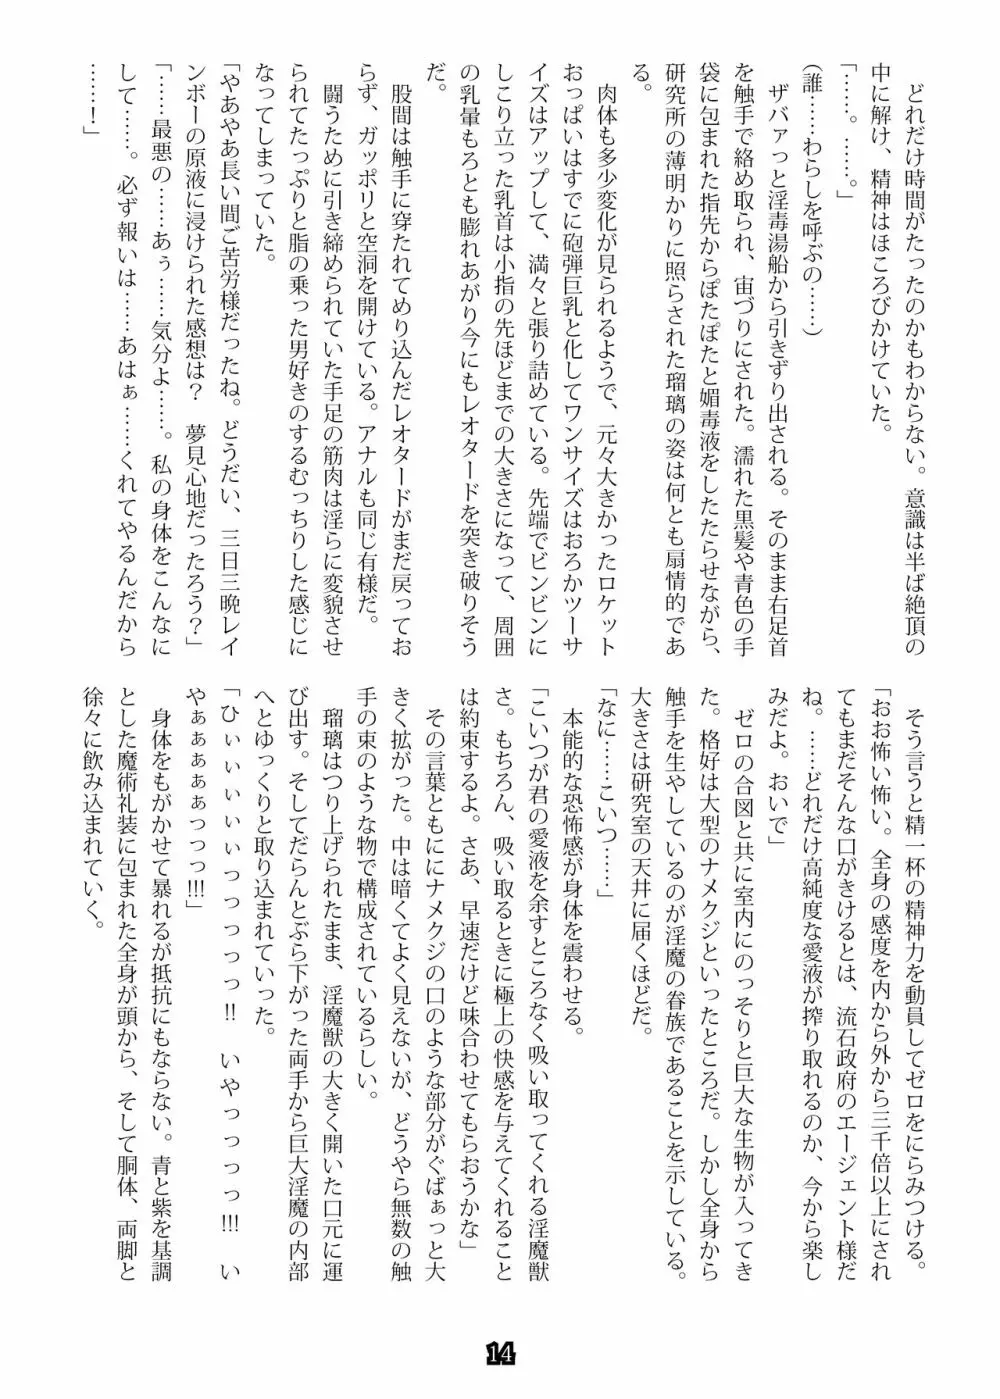 どれだけ時間がたったのかもわからない。意識は半ば絶頂の
中に解け、精神はほころびかけていた。
「……。……。」
(誰……わらしを呼ぶの……)
ザバァっと淫毒湯船から引きずり出される。そのまま右足首
を触手で絡め取られ、宙づりにされた。濡れた黒髪や青色の手
袋に包まれた指先からぽたぽたと媚毒液をしたたらせながら、
研究所の薄明かりに照らされた瑠璃の姿は何とも扇情的であ
る。
肉体も多少変化が見られるようで、元々大きかったロケット
おっぱいはすでに砲弾巨乳と化してワンサイズはおろかツーサ
イズはアップして、満々と張り詰めている。先端でビンビンに
しこり立った乳首は小指の先ほどまでの大きさになって、周囲
の乳暈もろとも膨れあがり今にもレオタードを突き破りそう
だ。
股間は触手に穿たれてめり込んだレオタードがまだ戻ってお
らず、ガッポリと空洞を開けている。アナルも同じ有様だ。
闘うために引き締められていた手足の筋肉は淫らに変貌させ
られてたっぷりと脂の乗った男好きのするむっちりした感じに
なってしまっていた。
「やあやあ長い間ご苦労様だったね。どうだい、三日三晩レイ
ンボーの原液に浸けられた感想は？　夢見心地だったろう？」
「……最悪の……あぅ……気分よ……。私の身体をこんなに
して……。必ず報いは……あはぁ……くれてやるんだから
……！」
そう言うと精一杯の精神力を動員してゼロをにらみつける。
「おお怖い怖い。全身の感度を内から外から三千倍以上にされ
てもまだそんな口がきけるとは、流石政府のエージェント様だ
ね。……どれだけ高純度な愛液が搾り取れるのか、今から楽し
みだよ。おいで」
ゼロの合図と共に室内にのっそりと巨大な生物が入ってき
た。格好は大型のナメクジといったところだ。しかし全身から
触手を生やしているのが淫魔の眷族であることを示している。
大きさは研究室の天井に届くほどだ。
「なに……こいつ……」
本能的な恐怖感が身体を震わせる。
「こいつが君の愛液を余すところなく吸い取ってくれる淫魔獣
さ。もちろん、吸い取るときに極上の快感を与えてくれること
は約束するよ。さあ、早速だけど味合わせてもらおうかな」
その言葉とともににナメクジの口のような部分がぐばぁっと大
きく拡がった。中は暗くてよく見えないが、どうやら無数の触
手の束のような物で構成されているらしい。
瑠璃はつり上げられたまま、淫魔獣の大きく開いた口元に運
び出す。そしてだらんとぶら下がった両手から巨大淫魔の内部
へとゆっくりと取り込まれていった。
「ひぃぃぃぃぃっっっっっ!!　いやっっっっっ!!!　い
やぁぁぁぁぁっっっ!!!」
身体をもがかせて暴れるが抵抗にもならない。青と紫を基調
とした魔術礼装に包まれた全身が頭から、そして胴体、両脚と
徐々に飲み込まれていく。
14